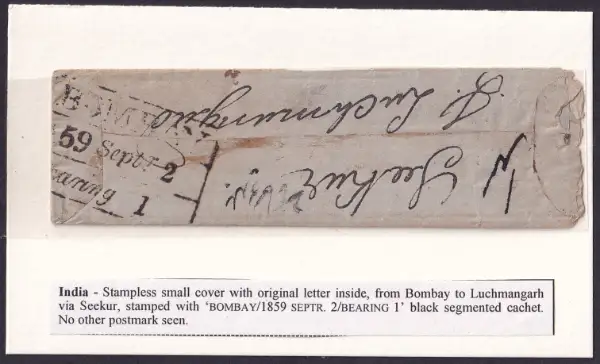 BOMBAY
59 Septr 2
earing 1
Luchmungud
Seekur
India - Stampless small cover with original letter inside, from Bombay to Luchmangarh
via Seekur, stamped with ‘BOMBAY/1859 SEPTR. 2/BEARING 1’ black segmented cachet.
No other postmark seen.